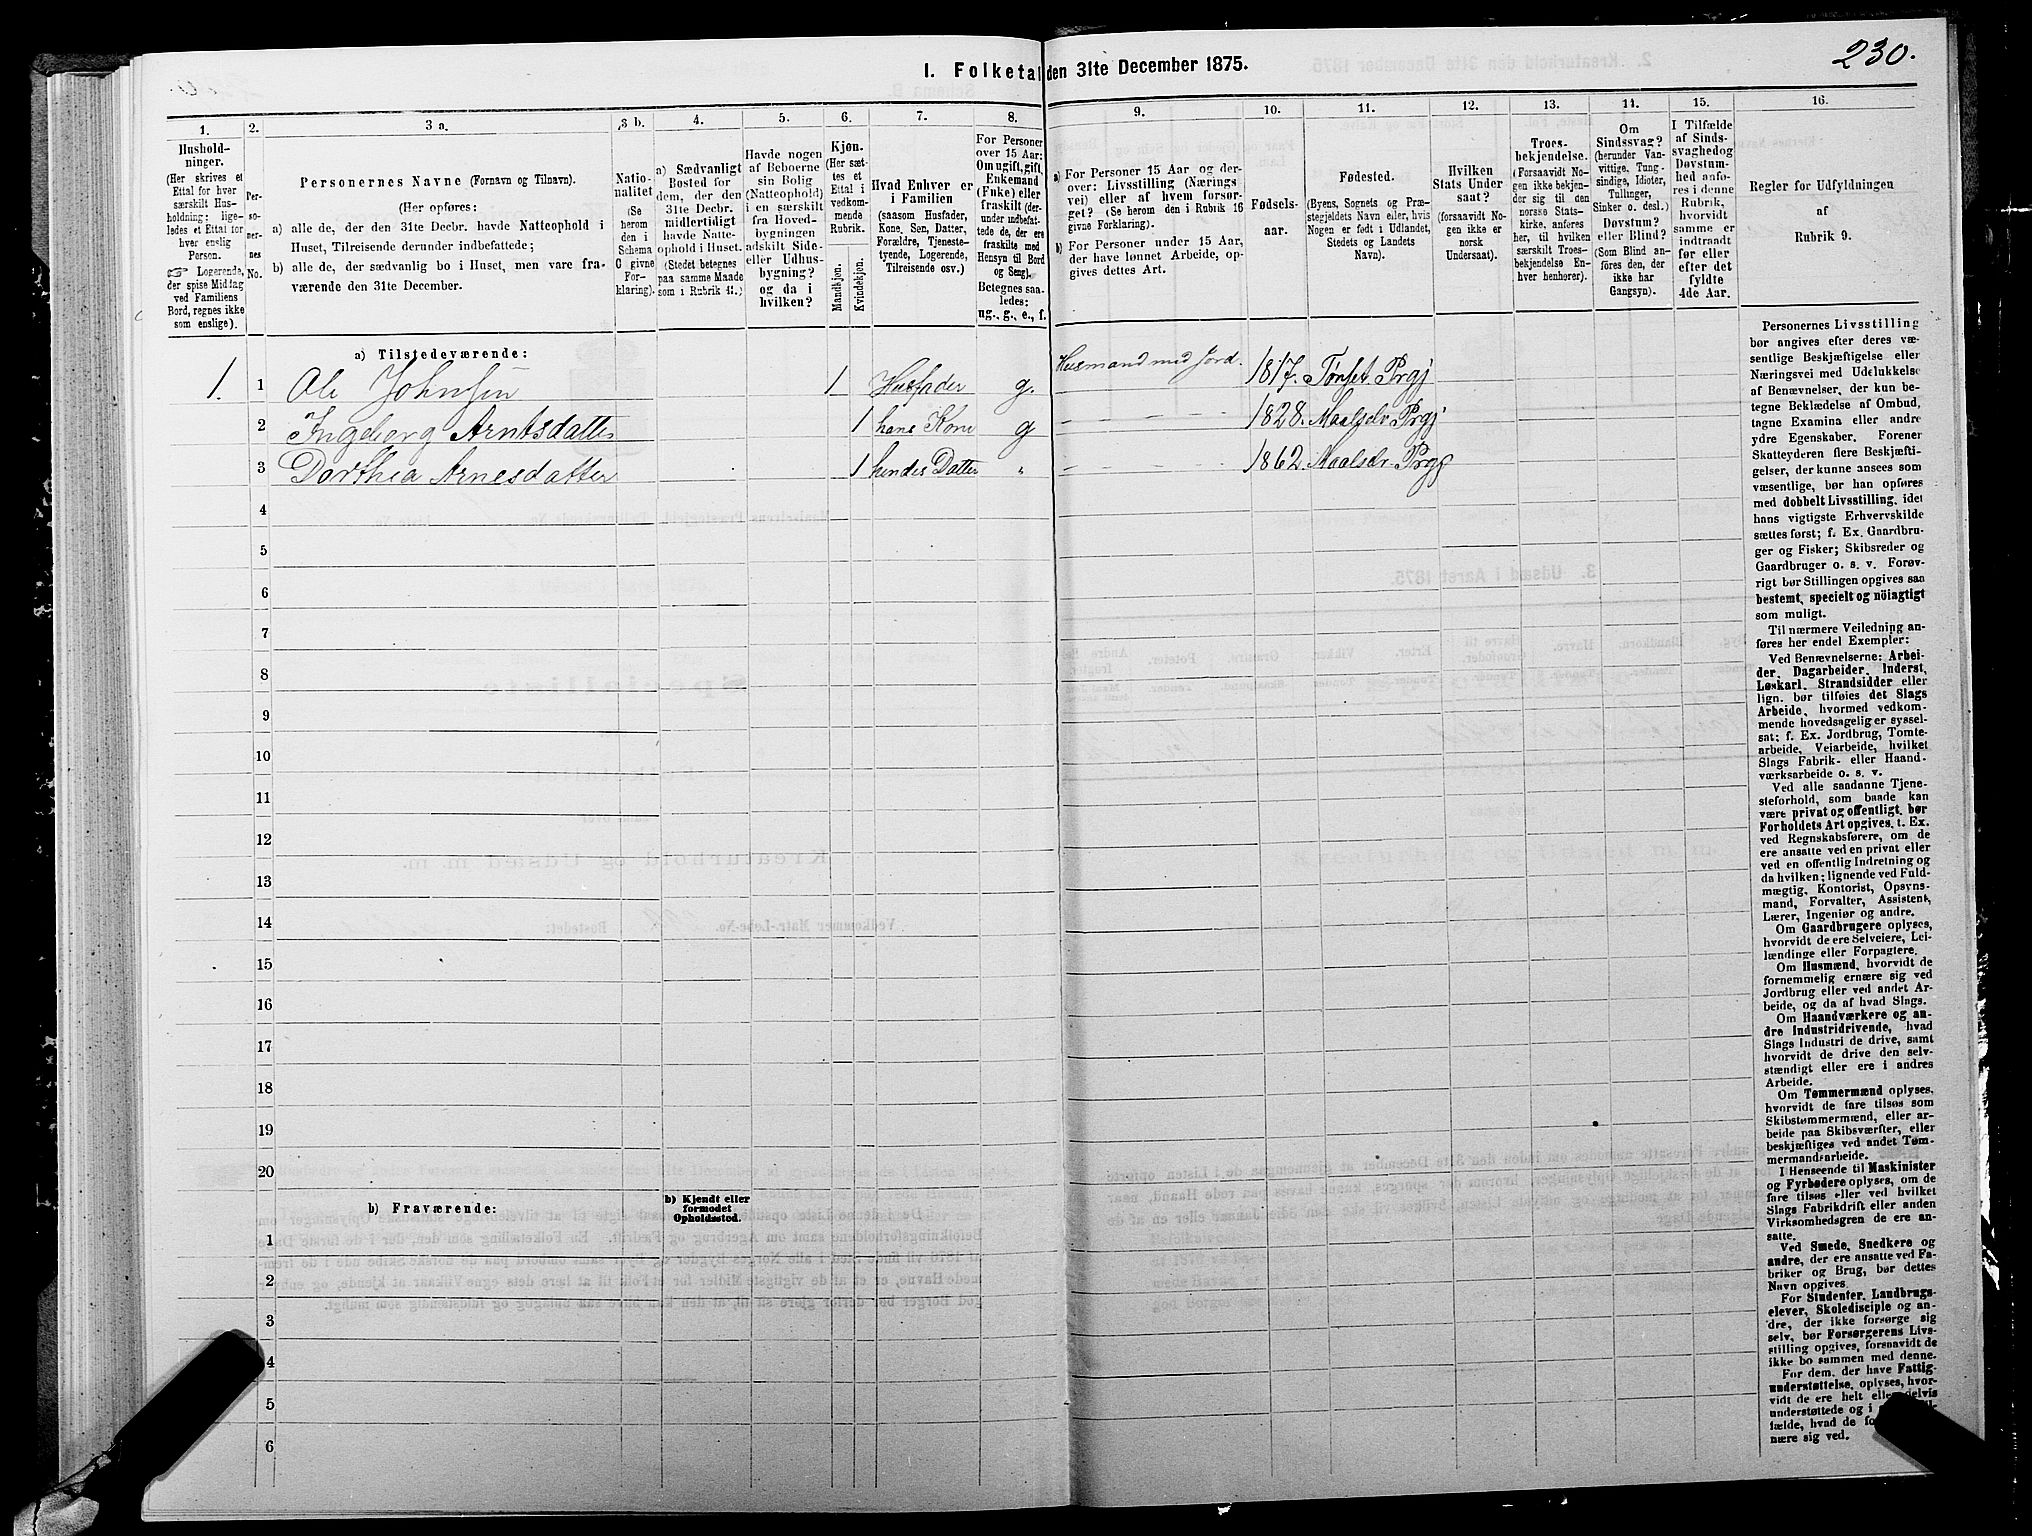 230.
I. Folketal den 31te December 1875.
1.
Hushold-
ninger.
(Her skrives et
Ettal for hver
særskilt Hus-
holdning: lige-
ledes et Ettal for
hver enslig
Person.
☞ Logerende,
der spise Middag
ved Familiens
Bord, regnes ikke
som enslige).
2.
Per-
so-
ner-
nes
No.
3 a.
Personernes Navne (Fornavn og Tilnavn).
(Her opføres:
a) alle de, der den 31te Decbr. havde Natteophold i
Huset, Tilreisende derunder indbefattede;
b) alle de, der sædvanlig bo i Huset, men vare fra-
værende den 31te December.
3 b.
Natio-
nalitet
(Se
herom
den i
Schema
C givne
For-
klaring).
4.
a) Sædvanligt
Bosted for
dem, der den
31te Decbr.
midlertidigt
havde Natte-
ophold i Huset.
(Stedet betegnes
paa samme Maade
som i Rubrik 11.)
5.
Havde nogen
af Beboerne
sin Bolig
(Natteophold)
i en særskilt
fra Hoved-
bygningen
adskilt Side-
eller Udhus-
bygning?
og da i
hvilken?
6.
Kjøn.
(Her sæt-
tes et
Ettal i
vedkom-
mende
Rubrik.
Mandkjøn.
Kvindekjøn.
7.
Hvad Enhver er
i Familien
(saasom Husfader,
Kone, Søn, Datter,
Forældre, Tjeneste-
tyende, Logerende,
Tilreisende osv.)
8.
For Personer
over 15 Aar:
Om ugift, gift,
Enkemand
(Enke) eller
fraskilt (der-
under indbefat-
tede de, der ere
fraskilte med
Hensyn til Bord
og Seng).
Betegnes saa-
ledes:
ug., g., e., f.
9.
a) For Personer 15 Aar og der-
over: Livsstilling (Nærings
vei) eller af hvem forsør-
get? (Se herom den i Rubrik 16
givne Forklaring).
b) For Personer under 15 Aar,
der have lønnet Arbeide, op-
gives dettes Art.
10.
Fødsels-
aar.
11.
Fødested.
(Byens, Sognets og Præ-
stegjeldets Navn eller, hvis
Nogen er født i Udlandet,
Stedets og Landets
Navn).
12.
Hvilken
Stats Under
saat?
(forsaavidt No-
gen ikke er
norsk
Undersaat).
13.
Troes-
bekjendelse.
(Forsaavidt No-
gen ikke bekjen-
der sig til den
norske Stats-
kirke, anføres
her, til hvilken
særskilt Troes-
bekjendelse En-
hver henhører).
14.
Om
Sindssvag?
(herunder Van-
vittige, Tung-
sindige, Idioter,
Tullinger,
Sinker o. desl.)
Døvstum?
eller Blind?
(Som Blind an-
føres den, der
ikke har
Gangsyn).
15.
I Tilfælde
af Sinds-
svaghed og
Døvstum-
hed anfø-
res i denne
Rubrik,
hvorvidt
samme er
indtraadt
før eller
efter det
fyldte
4de Aar.
16.
Regler for Udfyldningen
af
Rubrik 9.
a) Tilstedeværende:
1. 1 Ole Johnsen 1 Husfader g. Husmand med Jord. 1817. Tønset Prgj
2 Ingeborg Arntsdatter 1 hans Kone g — — — 1828. Maalselv Prgj
3 Dorthea Arnesdatter 1 hendes Datter " — — — 1862. Maalselv Prgj
4
5
6
7
8
9
10
11
12
13
14
15
16
17
18
19
20
b) Fraværende:
b) Kjendt eller
formodet
Opholdssted.
1
2
3
4
5
6
Personernes Livsstilling
bør angives efter deres væ-
sentlige Beskjæftigelse eller
Næringsvei med Udelukkelse
af Benævnelser, der kun be-
tegne Beklædelse af Ombud,
tagne Examina eller andre
ydre Egenskaber. Forener
Skatteyderen flere Beskjæfti-
gelser, der kunne ansees som
væsentlige, bør han opføres
med dobbelt Livsstilling, idet
hans vigtigste Erhvervskilde
sættes først; f. Ex. Gaardbru-
ger og Fisker; Skibsreder og
Gaardbruger o. s. v. Forøv-
rigt bør Stillingen opgives saa
bestemt, specielt og nöiagtigt
som muligt.
Til nærmere Veiledning an-
føres her endel Exempler:
Ved Benævnelserne: Arbei-
der, Dagarbeider, Inderst,
Løskarl, Strandsidder eller
lign. bør tilføies det Slags
Arbeide, hvormed vedkom-
mende hovedsagelig er syssel-
sat; f. Ex. Jordbrug, Tomte-
arbeide, Veiarbeide, hvilket
Slags Fabrik- eller Haand-
værksarbeide o. s. v.
Ved alle saadanne Tjene-
steforhold, som baade kan
være privat og offentligt, bør
Forholdets Art opgives, t. Ex.
ved Regnskabsførere, om de
ere ansatte ved en privat eller
ved en offentlig Indretning og
da hvilken; lignende ved Fuld-
mægtig, Kontorist, Opsyns-
mand, Forvalter, Assistent,
Lærer, Ingeniør og andre.
Om Gaardbrugere oplyses,
hvorvidt de ere Selveiere, Lei-
lændinge eller Forpagtere.
Om Husmænd, hvorvidt de
fornemmelig ernære sig ved
Jordbrug eller ved andet Ar-
beide, og da af hvad Slags.
Om Haandværkere og an-
dre Industridrivende, hvad
Slags Industri de drive, samt
hvorvidt de drive den selv-
stændigt eller ere i andres
Arbeide.
Om Tømmermænd oplyses,
hvorvidt de fare tilsøs som
Skibstømmermænd, eller ar-
beide paa Skibsværfter, eller
beskjæftiges ved andet Tøm-
mermandsarbeide.
I Henseende til Maskinister
og Fyrbødere oplyses, om de
fare tilsøs eller ved hvilket
Slags Fabrikdrift eller anden
Virksomhedsgren de ere an-
satte.
Ved Smede, Snedkere og
andre, der ere ansatte ved Fa-
briker og Brug, bør dettes
Navn opgives.
For Studenter, Landbrugs-
elever, Skoledisciple og an-
dre, der ikke forsørge sig
selv, bør Forsørgerens Livs-
stilling opgives, forsaavidt de
ikke bo sammen med denne.
For dem, der have Fattig-
understøttelse, oplyses, hvor-
vidt de ere helt eller delvis
understøttede og i
fælde, hvad de
nære sig ved.